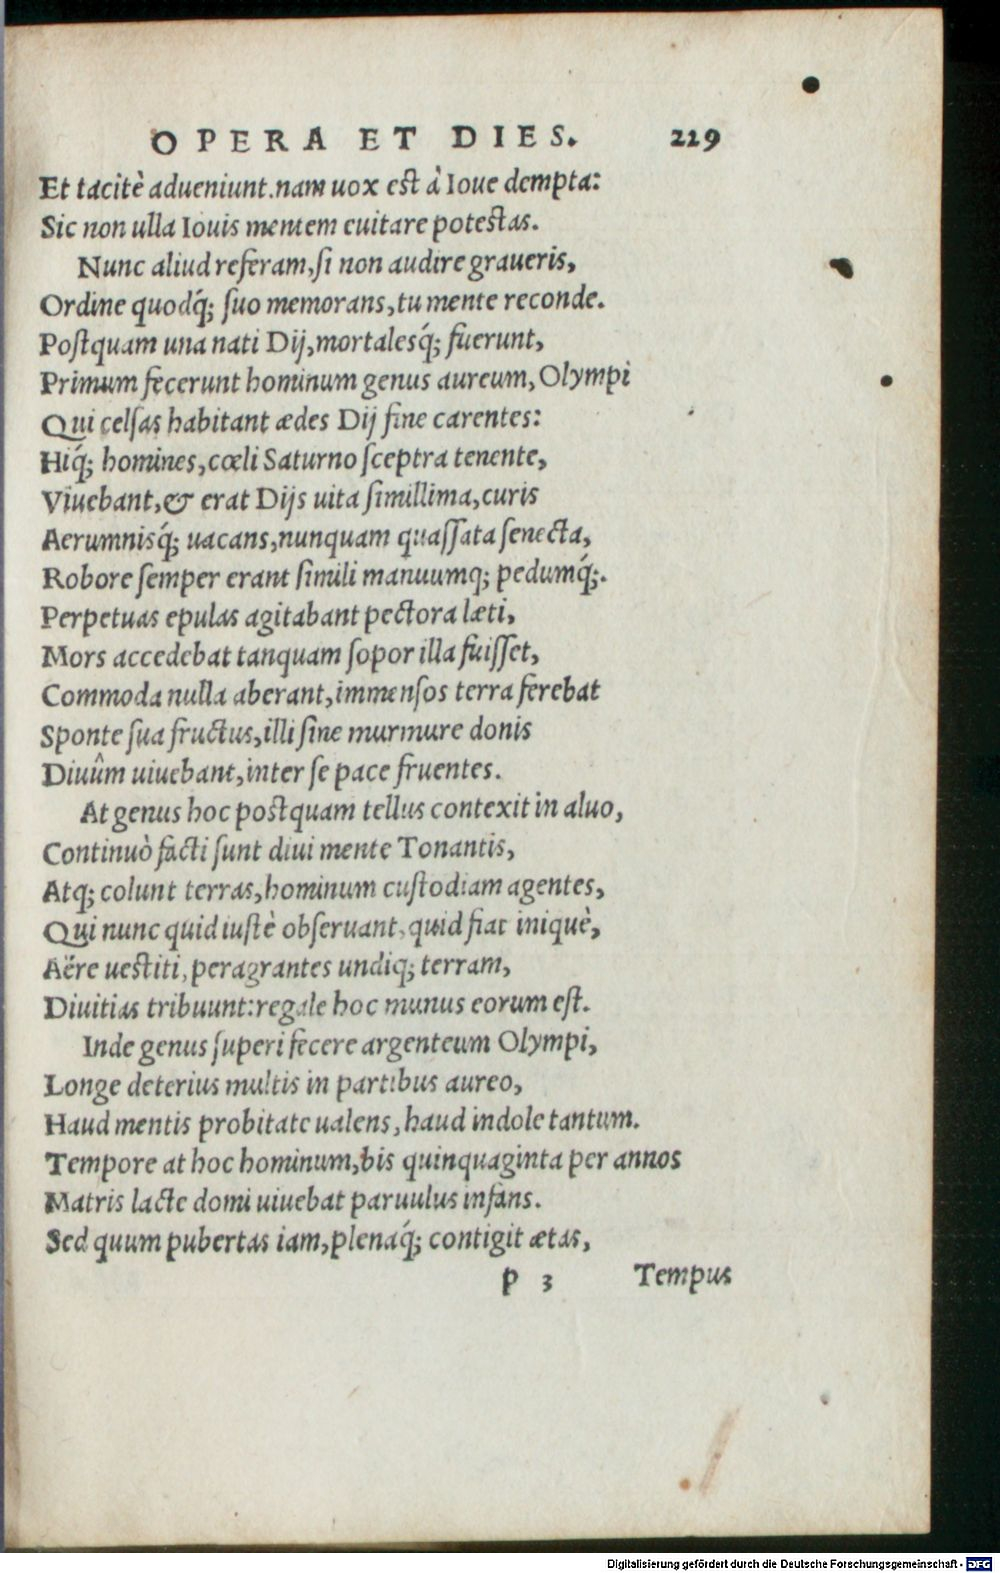 OPERA ET DIES. 229
Et tacitè adueniunt.nam uox est à Ioue dempta:
Sic non ulla Iouis mentem euitare potestas.
Nunc aliud referam,si non audire graueris,
Ordine quodq́; suo memorans,tu mente reconde.
Postquam una nati Dij,mortalesq́; fuerunt,
Primum fecerunt hominum genus aureum, Olympi
Qui celsas habitant ædes Dij fine carentes:
Hiq́; homines, cœli Saturno sceptra tenente,
Viuebant,& erat Dijs uita simillima,curis
Aerumnisq́; uacans,nunquam quassata senecta,
Robore semper erant simili manuumq; pedumq́;.
Perpetuas epulas agitabant pectora læti,
Mors accedebat tanquam sopor illa fuisset,
Commoda nulla aberant,immensos terra ferebat
Sponte sua fructus,illi sine murmure donis
Diuûm uiuebant,inter se pace fruentes.
At genus hoc postquam tellus contexit in aluo,
Continuò facti sunt diui mente Tonantis,
Atq; colunt terras,hominum custodiam agentes,
Qui nunc quid iustè obseruant, quid fiat iniquè,
Aëre uestiti, peragrantes undiq; terram,
Diuitias tribuunt:regale hoc munus eorum est.
Inde genus superi fecere argenteum Olympi,
Longe deterius multis in partibus aureo,
Haud mentis probitate ualens, haud indole tantum.
Tempore at hoc hominum,bis quinquaginta per annos
Matris lacte domi uiuebat paruulus infans.
Sed quum pubertas iam,plenaq́; contigit ætas,
p 3 Tempus
Digitalisierung gefördert durch die Deutsche Forschungsgemeinschaft - DFG